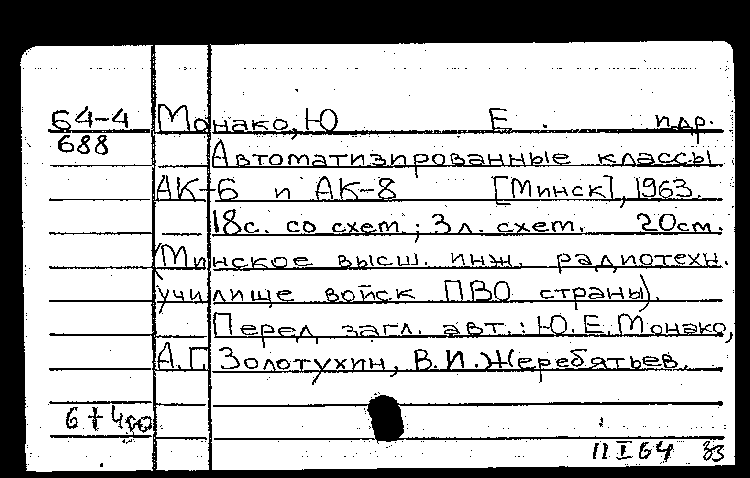 64-4 Монако, Ю Е. и др.
688
Автоматизированные классы
АК-6 и АК-8 [Минск], 1963.
18с. со схем.; 3 л. схем. 20см.
(Минское высш. инж. радиотехн.
училище войск ПВО страны).
Перед загл. авт.: Ю.Е.Монако,
А.Г. Золотухин, В.И.Жеребятьев.
6 + 4
11 I 64